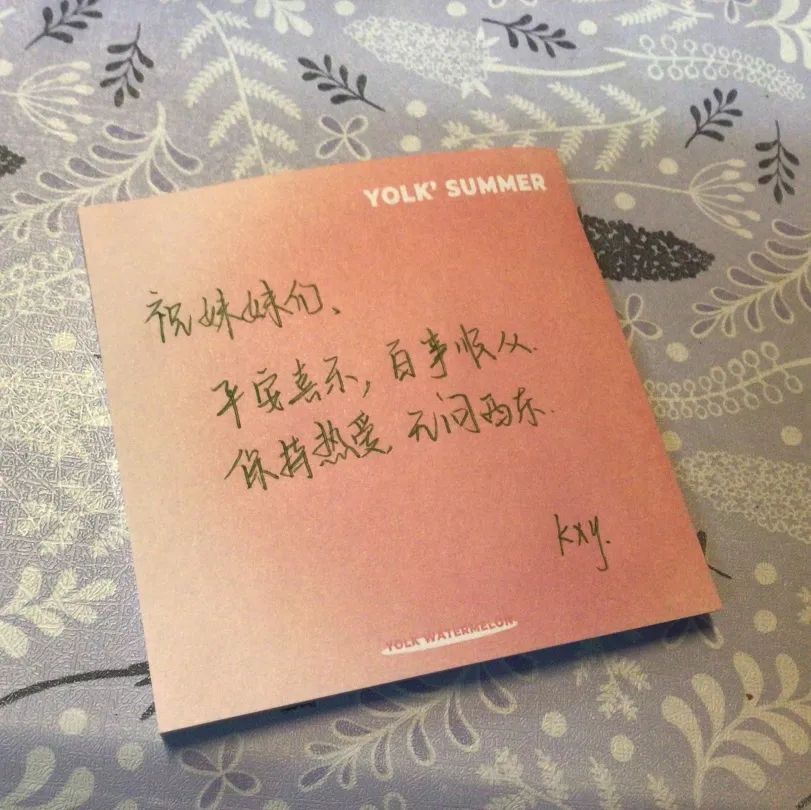 YOLK' SUMMER
祝妹妹们、
平安喜乐，百事顺从.
保持热爱，无问西东.
kxy.
YOLK WATERMELON